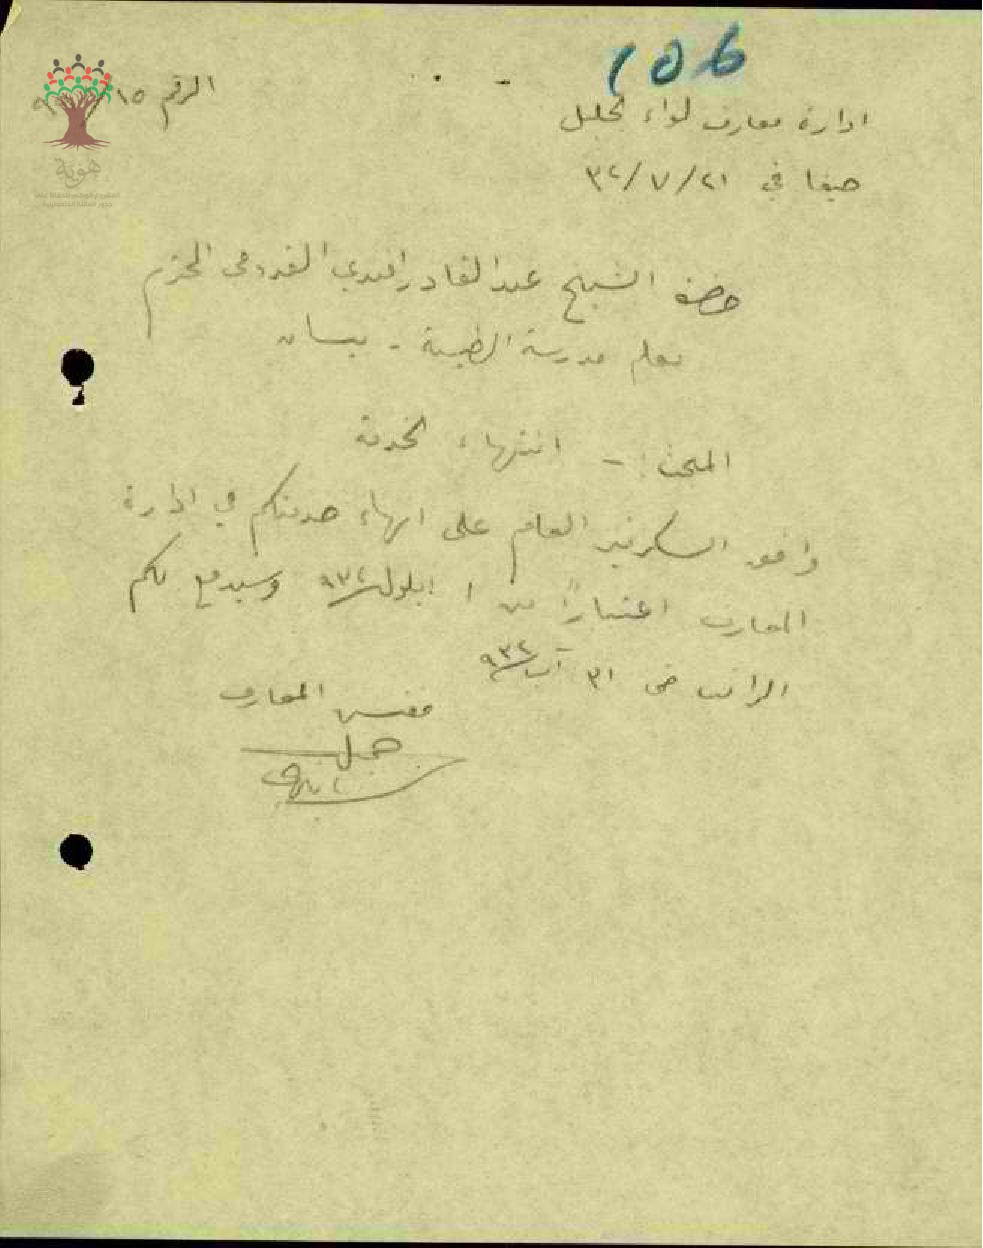 156
الرقم ١٥/
ادارة معارف لواء الجليل
حيفا في ٢١/٧/٣٢
هوية
حضرة الشيخ عبد القادر افندي القدومي المحترم
معلم مدرسة الطيبة - بيسان
المبحث :- انتهاء الخدمة
وافق السكرتير العام على انهاء خدمتكم في ادارة
المعارف اعتباراً من ١ ايلول ٩٣٢ وسيدفع لكم
الراتب حتى ٣١ آب ٩٣٢
مفتش المعارف